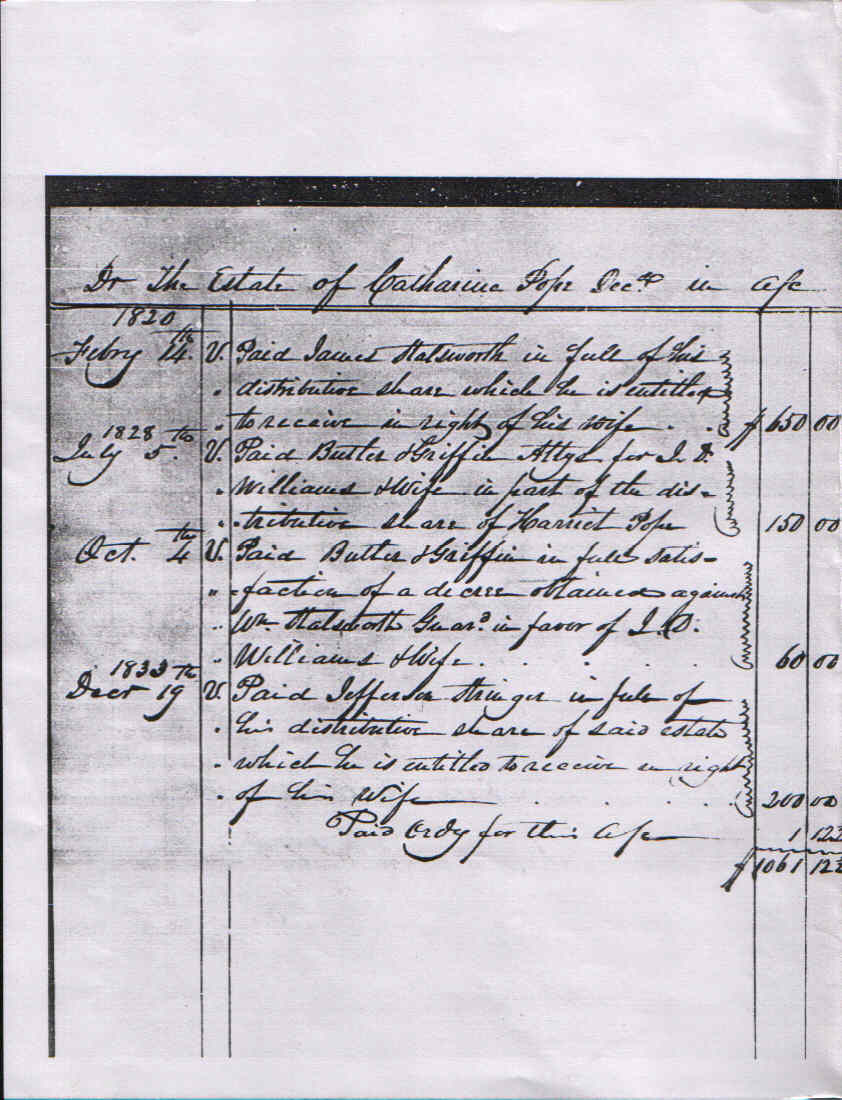 Dr The Estate of Catharine Pope Decd in a/c
1820
Febry 14th V. Paid James Halsworth in full of his
" distributive share which he is entitled
" to receive in right of his wife . . $ 650 00
1828
July 5th V. Paid Butler & Griffin Attys for I. D.
" Williams & Wife in part of the dis=
" =tributive share of Harriet Pope 150 00
Oct. 4th V. Paid Butler & Griffin in full satis=
" =faction of a decree obtained against
" Wm. Halsworth Guard in favor of I. D.
" Williams & Wife . . . . . 60 00
1833
Decr 19th V. Paid Jefferson Stringer in full of
" his distributive share of said estate
" which he is entitled to receive in right
" of his Wife . . . . 200 00
Paid Ordy for this a/c 1 12½
$ 1061 12½